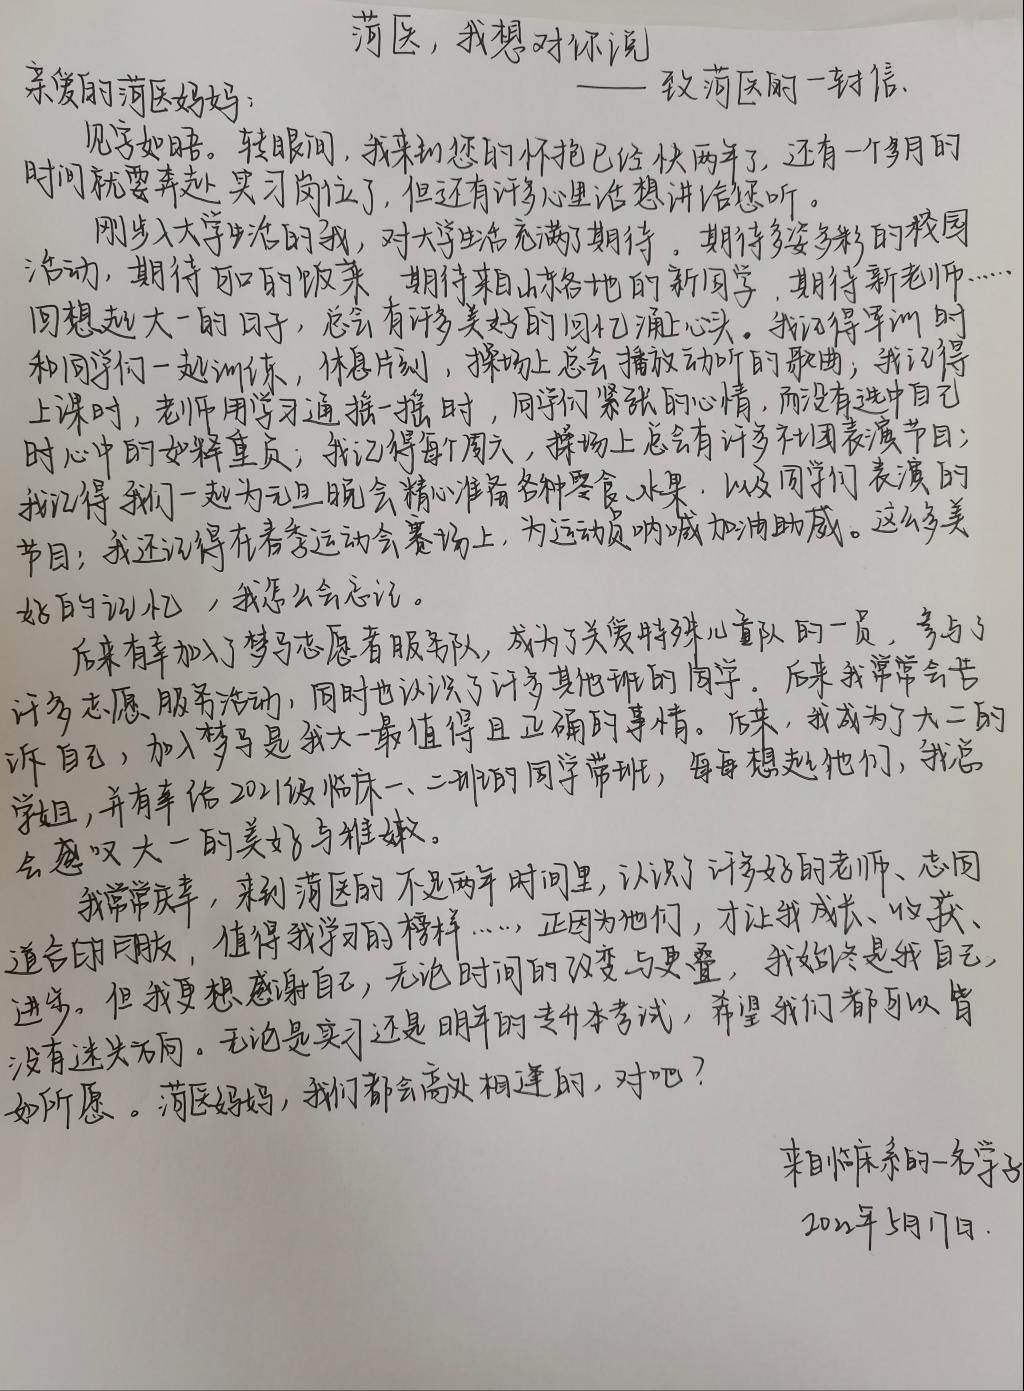 菏医，我想对你说
——致菏医的一封信.
亲爱的菏医妈妈：
见字如晤。转眼间，我来到您的怀抱已经快两年了，还有一个多月的
时间就要奔赴实习岗位了，但还有许多心里话想讲给您听。
刚步入大学生活的我，对大学生活充满了期待。期待多姿多彩的校园
活动，期待可口的饭菜 期待来自山东各地的新同学，期待新老师……
回想起大一的日子，总会有许多美好的回忆涌上心头。我记得军训时
和同学们一起训练，休息片刻，操场上总会播放动听的歌曲；我记得
上课时，老师用学习通摇一摇时，同学们紧张的心情，而没有选中自己
时心中的如释重负；我记得每个周六，操场上总会有许多社团表演节目；
我记得我们一起为元旦晚会精心准备各种零食、水果，以及同学们表演的
节目；我还记得在春季运动会赛场上，为运动员呐喊加油助威。这么多美
好的记忆，我怎么会忘记。
后来有幸加入了梦马志愿者服务队，成为了关爱特殊儿童队的一员，参与了
许多志愿服务活动，同时也认识了许多其他班的同学。后来我常常会告
诉自己，加入梦马是我大一最值得且正确的事情。后来，我成为了大二的
学姐，并有幸给2021级临床一、二班的同学带班，每每想起他们，我总
会感叹大一的美好与稚嫩。
我常常庆幸，来到菏医的不足两年时间里，认识了许多好的老师、志同
道合的朋友，值得我学习的榜样……，正因为他们，才让我成长、收获、
进步。但我更想感谢自己，无论时间的改变与更叠，我始终是我自己，
没有迷失方向。无论是实习还是明年的专升本考试，希望我们都可以皆
如所愿。菏医妈妈，我们都会高处相逢的，对吧？
来自临床系的一名学子
2022年5月17日.